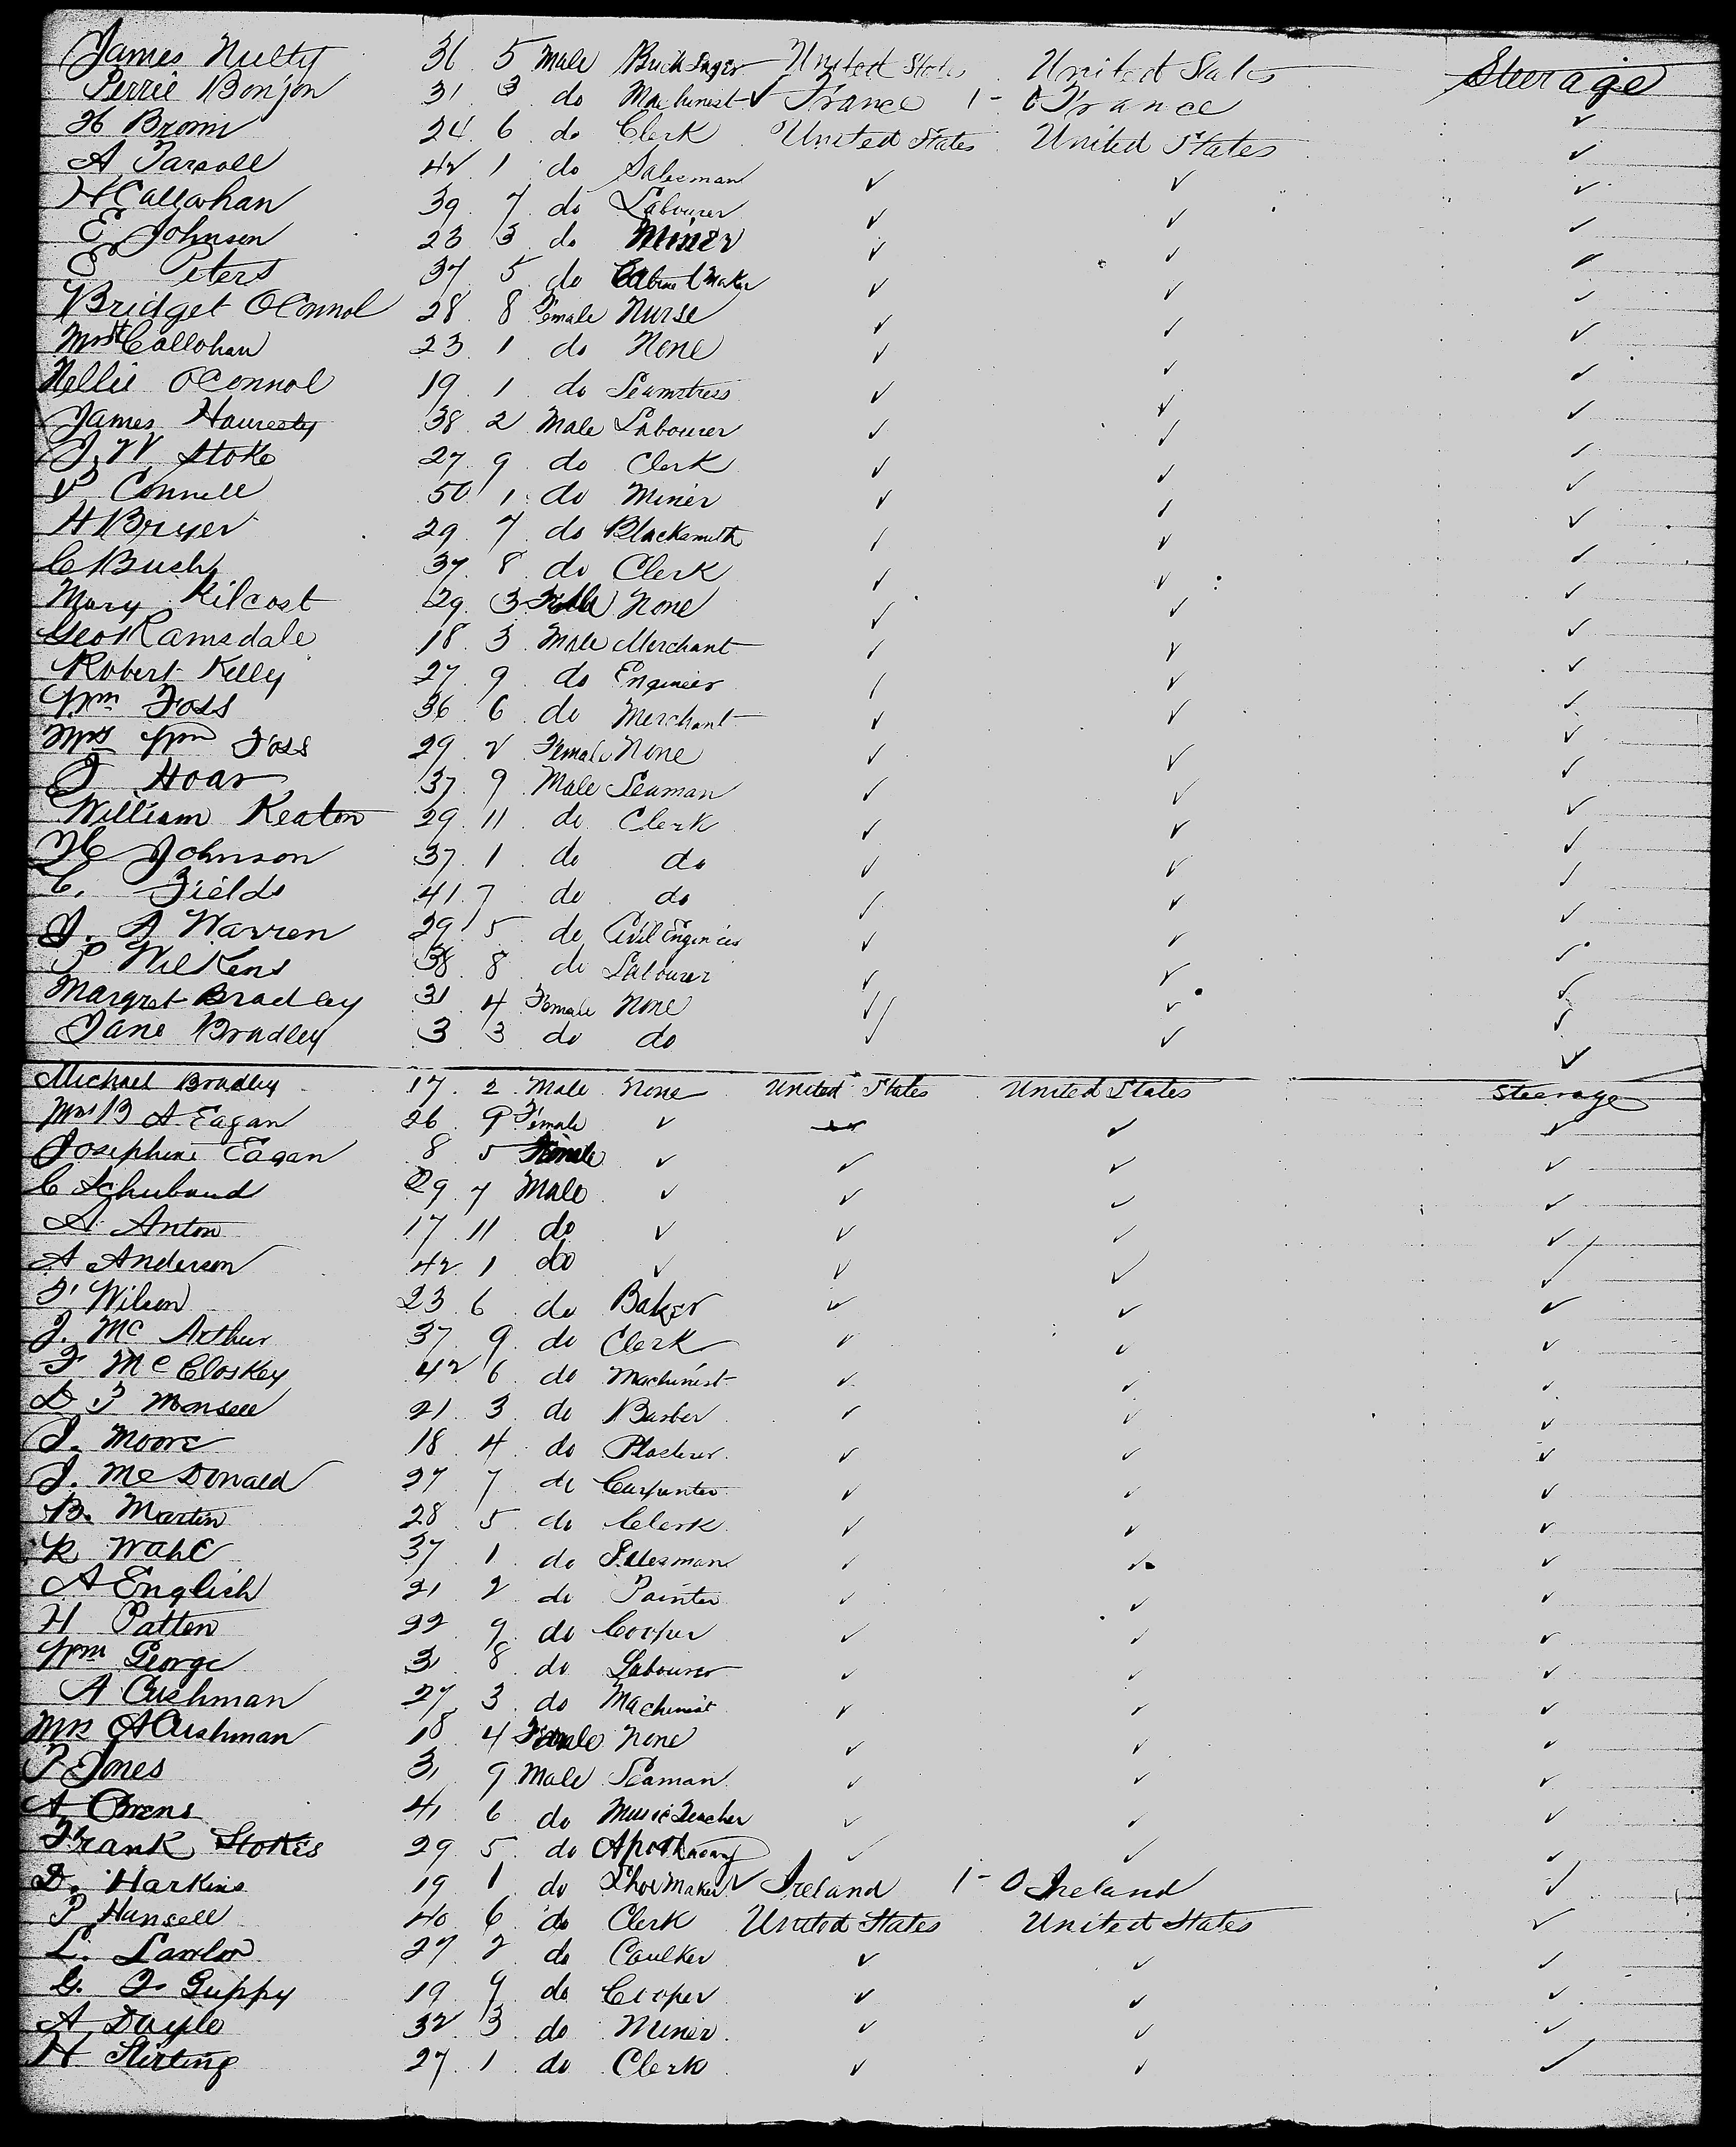 James Nulty 31 5 Male United States United States Steerage
Perrie Bonjon 31 3 do Machinest ✓ France 1 - 0 France
H Brown 24 6 do Clerk United States United States ✓
A Farroll 42 1 do Salesman ✓ ✓ ✓
H Callahan 39 7 do Labourer ✓ ✓ ✓
E Johnson 23 3 do Miner ✓ ✓ ✓
E Peters 37 5 do Cabinet Maker ✓ ✓ ✓
Bridget OConnol 28 8 Female Nurse ✓ ✓ ✓
Mrs H Callohan 23 1 do None ✓ ✓ ✓
Nellie OConnol 19 1 do Seamstress ✓ ✓ ✓
James 38 2 Male Labourer ✓ ✓ ✓
J. W. Stoke 27 9 do Clerk ✓ ✓ ✓
P Connell 50 1 do Miner ✓ ✓ ✓
H Bryer 29 7 do Blacksmith ✓ ✓ ✓
C Bush 37 8 do Clerk ✓ ✓ ✓
Mary Kilcost 29 3 Female None ✓ ✓ ✓
Geo Ramsdale 18 3 Male Merchant ✓ ✓ ✓
Robert Kelly 27 9 do Engineer ✓ ✓ ✓
Wm Foss 36 6 do Merchant ✓ ✓ ✓
Mrs Wm Foss 29 2 Female None ✓ ✓ ✓
J Hoar 37 9 Male Seaman ✓ ✓ ✓
William Keaton 29 11 do Clerk ✓ ✓ ✓
H Johnson 37 1 do do ✓ ✓ ✓
C. Fields 41 7 do do ✓ ✓ ✓
J. A Warren 29 5 do Civil Engineer ✓ ✓ ✓
P Wilkens 38 8 do Labourer ✓ ✓ ✓
Margret Bradley 31 4 Female None ✓ ✓ ✓
Jane Bradley 3 3 do do ✓ ✓ ✓
Michael Bradley 17 2 Male None United States United States Steerage
Mrs B A Eagan 26 9 Female ✓ ✓ ✓ ✓
Josephine Eagan 8 5 Female ✓ ✓ ✓ ✓
C Schuband 29 7 Male ✓ ✓ ✓ ✓
A. Anton 17 11 do ✓ ✓ ✓ ✓
A Anderson 42 1 do ✓ ✓ ✓ ✓
F Wilson 23 6 do Baker ✓ ✓ ✓
J. Mc Arthur 37 9 do Clerk ✓ ✓ ✓
F McCloskey 42 6 do Machinest ✓ ✓ ✓
D F Monsell 21 3 do Barber ✓ ✓ ✓
J. Moore 18 4 do Plasterer ✓ ✓ ✓
J. McDonald 27 7 do Carpenter ✓ ✓ ✓
B. Martin 28 5 do Clerk ✓ ✓ ✓
R Wahl 37 1 do Salesman ✓ ✓ ✓
A English 21 2 do Painter ✓ ✓ ✓
H Patten 22 9 do Cooper ✓ ✓ ✓
Wm George 31 8 do Labourer ✓ ✓ ✓
A Cushman 27 3 do Machinist ✓ ✓ ✓
Mrs A Cushman 18 4 Female None ✓ ✓ ✓
F Jones 31 9 Male Seaman ✓ ✓ ✓
A Owens 41 6 do Music Teacher ✓ ✓ ✓
Frank Stokes 29 5 do Apothecary ✓ ✓ ✓
D. Harkins 19 1 do Shoe Maker ✓ Ireland 1 - 0 Ireland ✓
P Hansell 40 6 do Clerk United States United States ✓
L. Lawlor 27 2 do Caulker ✓ ✓ ✓
G. F. Guppy 19 9 do Cooper ✓ ✓ ✓
A Doyle 32 3 do Miner ✓ ✓ ✓
H Stirling 27 1 do Clerk ✓ ✓ ✓